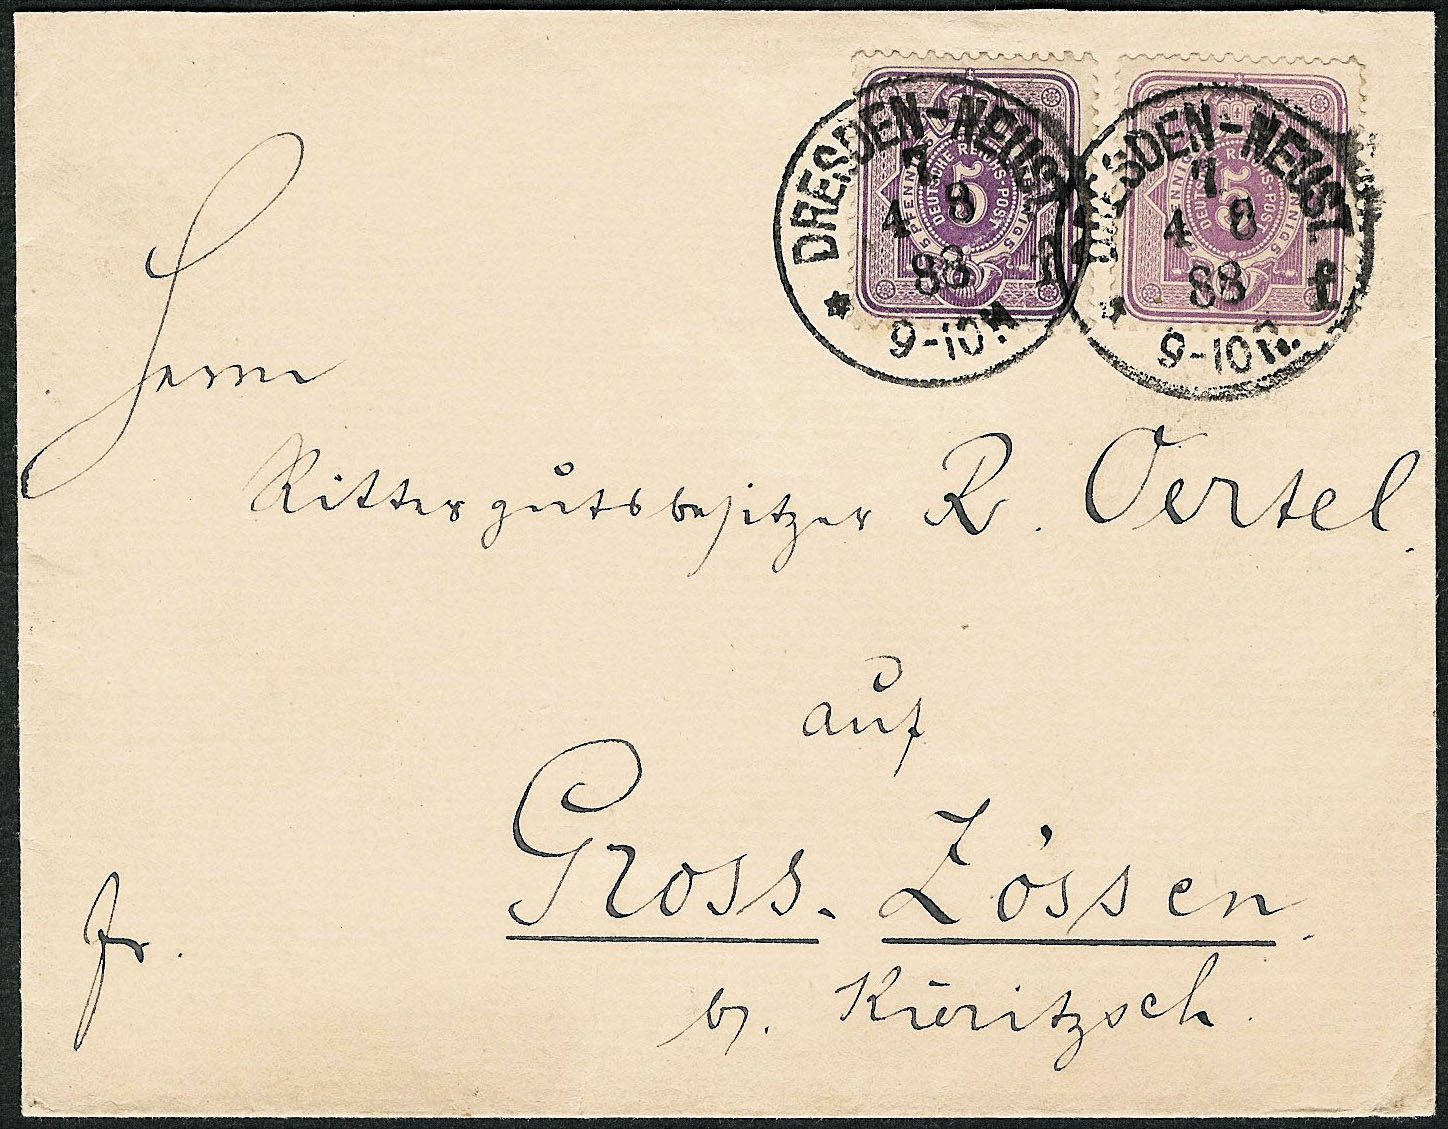 DRESDEN-NEUST
7
4 8
88
9-10N.
DRESDEN-NEUST
7
4 8
88 f
9-10N.
5 PFENNIG DEUTSCHE REICHS-POST PFENNIG 5
5
PFENNIG DEUTSCHE REICHS-POST PFENNIG 5
5
Herrn
Rittergutsbesitzer R. Oertel.
auf
Gross-Zössen.
fr.
b/. Kieritzsch.